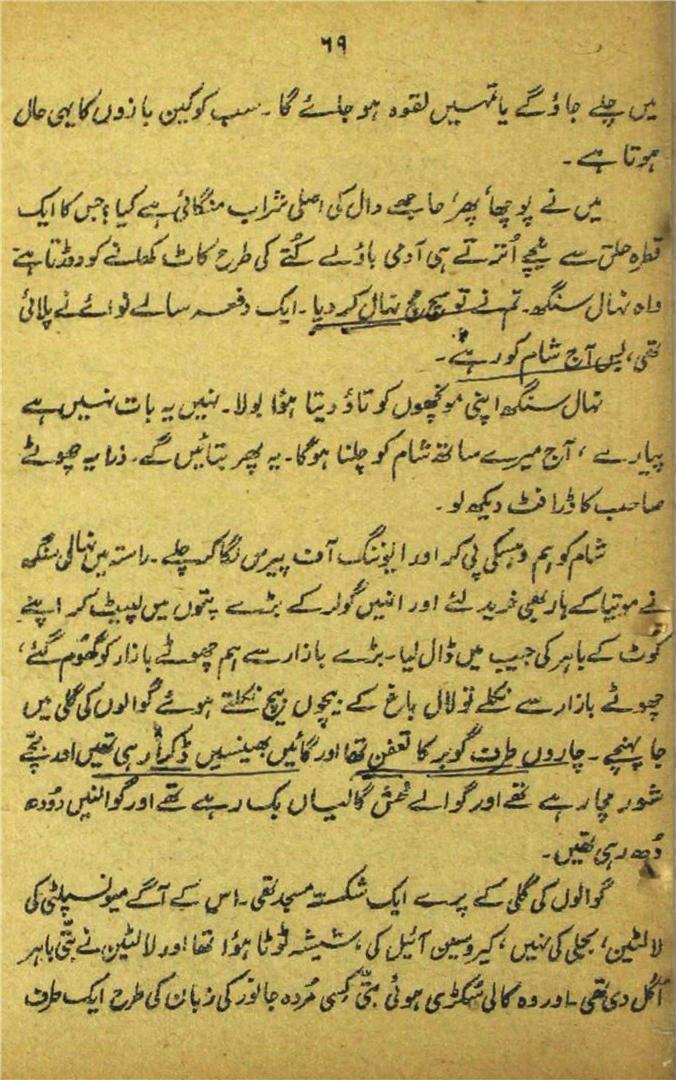 ۶۹
میں چلے جاؤ گے یا تمہیں لقوہ ہو جائے گا۔ سب کوکین بازوں کا یہی حال
ہوتا ہے۔
میں نے پوچھا پھر، جامچھے وال کی اصلی شراب منگائی ہے کیا؟ جس کا ایک
قطرہ حلق سے نیچے اُترتے ہی آدمی باؤلے کُتے کی طرح کاٹ کھانے کو دوڑتا ہے
واہ نہال سنگھ۔ تم نے تو سچ مچ نہال کر دیا۔ ایک دفعہ سالے نوائے نے پلائی
تھی، بس آج شام کو رہے۔
نہال سنگھ اپنی مونچھوں کو تاؤ دیتا ہؤا بولا۔ نہیں یہ بات نہیں ہے
پیارے، آج میرے ساتھ شام کو چلنا ہوگا۔ یہ پھر بتائیں گے۔ ذرا یہ چھوٹے
صاحب کا ڈرافٹ دیکھ لو۔
شام کو ہم وہسکی پی کر اور ایوننگ آف پیرس لگا کر چلے۔ راستہ میں نہال سنگھ
نے موتیا کے ہار بھی خرید لئے اور انہیں گولر کے بڑے پتوں میں لپیٹ کر اپنے
کوٹ کے باہر کی جیب میں ڈال لیا۔ بڑے بازار سے ہم چھوٹے بازار کو گھُوم گئے،
چھوٹے بازار سے نکلے تو لال باغ کے بیچوں بیچ نکلتے ہوئے گوالوں کی گلی میں
جا پہنچے۔ چاروں طرف گوبر کا تعفن تھا اور گائیں بھینسیں ڈکرا رہی تھیں اور بچّے
شور مچا رہے تھے اور گوالے فحش گالیاں بک رہے تھے اور گوالنیں دُودھ
دُھ رہی تھیں۔
گوالوں کی گلی کے پرے ایک شکستہ مسجد تھی۔ اس کے آگے میونسپلٹی کی
لالٹین، بجلی کی نہیں، کیروسین آئیل کی، شیشہ ٹوٹا ہؤا تھا اور لالٹین نے بتّی باہر
اُگل دی تھی۔ اور وہ کالی سُکڑی ہوئی بتّی کِسی مُردہ جانور کی زبان کی طرح ایک طرف